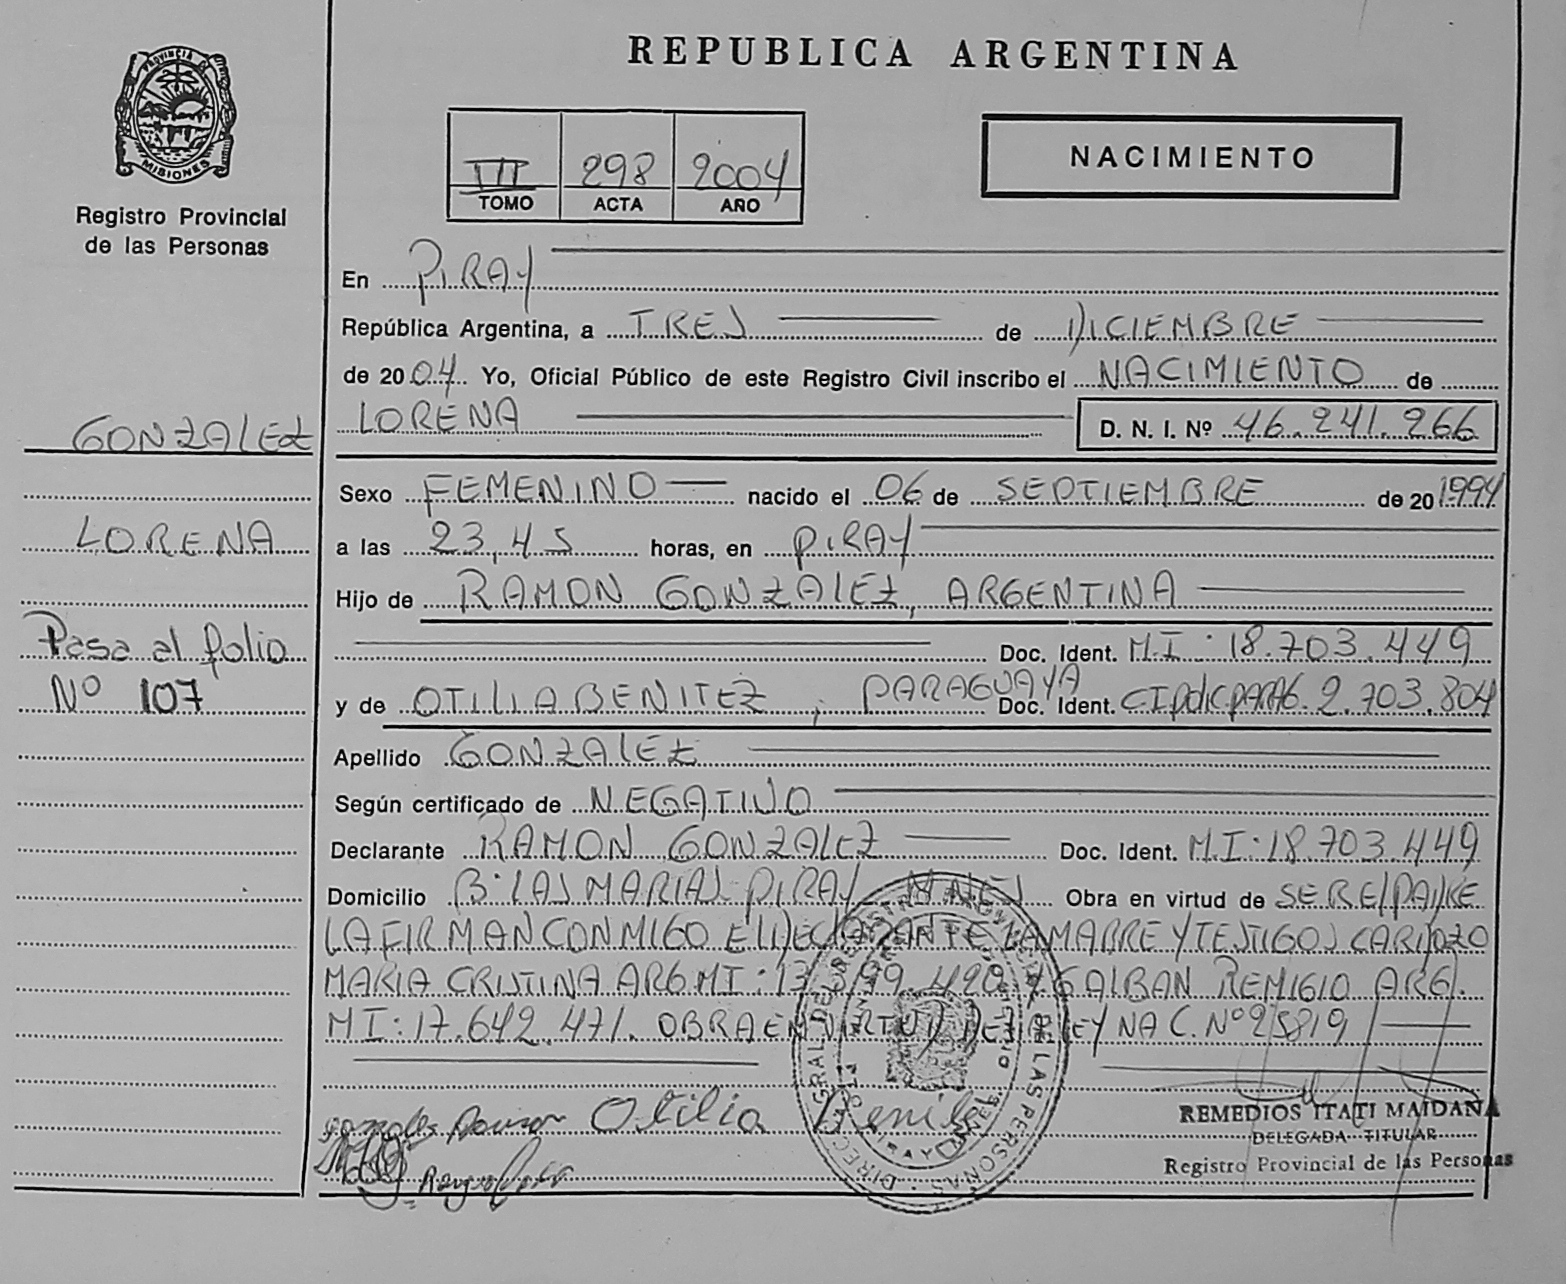 REPUBLICA ARGENTINA
PROVINCIA DE
MISIONES
Registro Provincial
de las Personas
III 298 2004
TOMO ACTA AÑO
NACIMIENTO
En PIRAY
República Argentina, a TRES de DICIEMBRE
de 2004 Yo, Oficial Público de este Registro Civil inscribo el NACIMIENTO de
LORENA D. N. I. Nº 46.241.266
GONZALEZ
LORENA
Pasa al folio
Nº 107
Sexo FEMENINO nacido el 06 de SEPTIEMBRE de 20 1994
a las 23,45 horas, en PIRAY
Hijo de RAMON GONZALEZ, ARGENTINA
Doc. Ident. M.I: 18.703.449
y de OTILIA BENITEZ, PARAGUAYA Doc. Ident. 2.703.804
Apellido GONZALEZ
Según certificado de NEGATIVO
Declarante RAMON GONZALEZ Doc. Ident. M.I: 18.703.449
Domicilio Bº LAS MARIAS PIRAY MNES Obra en virtud de SERELPADRE
LA FIRMAN CONMIGO EL DECLARANTE LA MADRE Y TESTIGOS CARDOZO
MARIA CRISTINA ARG MI: 13 Y GALBAN REMIGIO ARG.
MI: 17.642.471. OBRA EN VIRTUD DE LA LEY NAC. Nº 25819
Otilia Benitez
REMEDIOS ITATI MAIDANA
DELEGADA TITULAR
Registro Provincial de las Personas